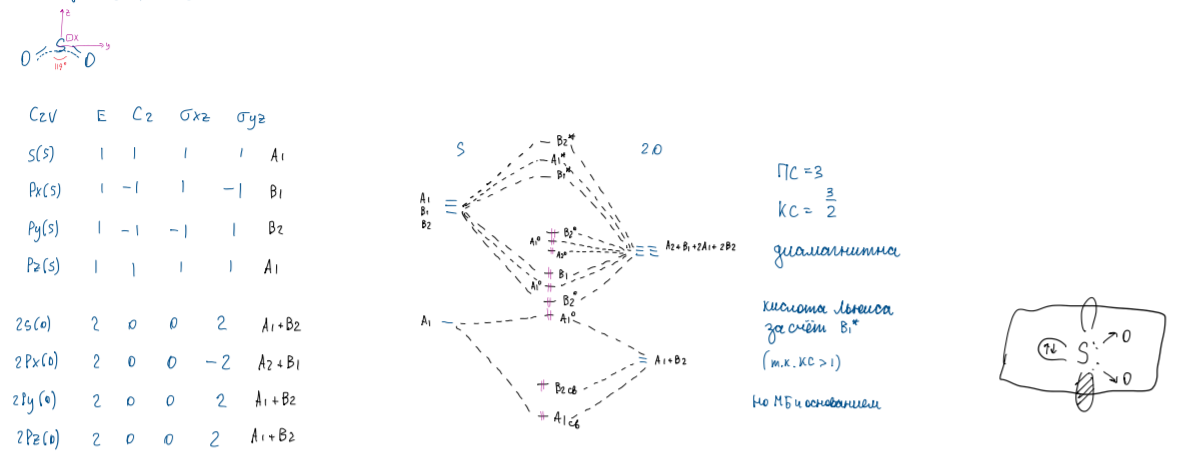 z
S □x y
O O
119°
C2v E C2 σxz σyz
S(s) 1 1 1 1 A1
Px(s) 1 -1 1 -1 B1
Py(s) 1 -1 -1 1 B2
Pz(s) 1 1 1 1 A1
2s(o) 2 0 0 2 A1+B2
2Px(o) 2 0 0 -2 A2+B1
2Py(o) 2 0 0 2 A1+B2
2Pz(o) 2 0 0 2 A1+B2
S 2O
B2*
A1*
B1*
A1
B1
B2
B2°
A1°
A2°
A2+B1+2A1+2B2
B1
A1°
B2°
A1 A1°
A1+B2
B2св
A1св
ПС=3
КС= 3/2
диамагнитна
кислота Льюиса
за счёт B1*
(т.к. КС>1)
но МБ и основанием
O
↑↓ S:
O